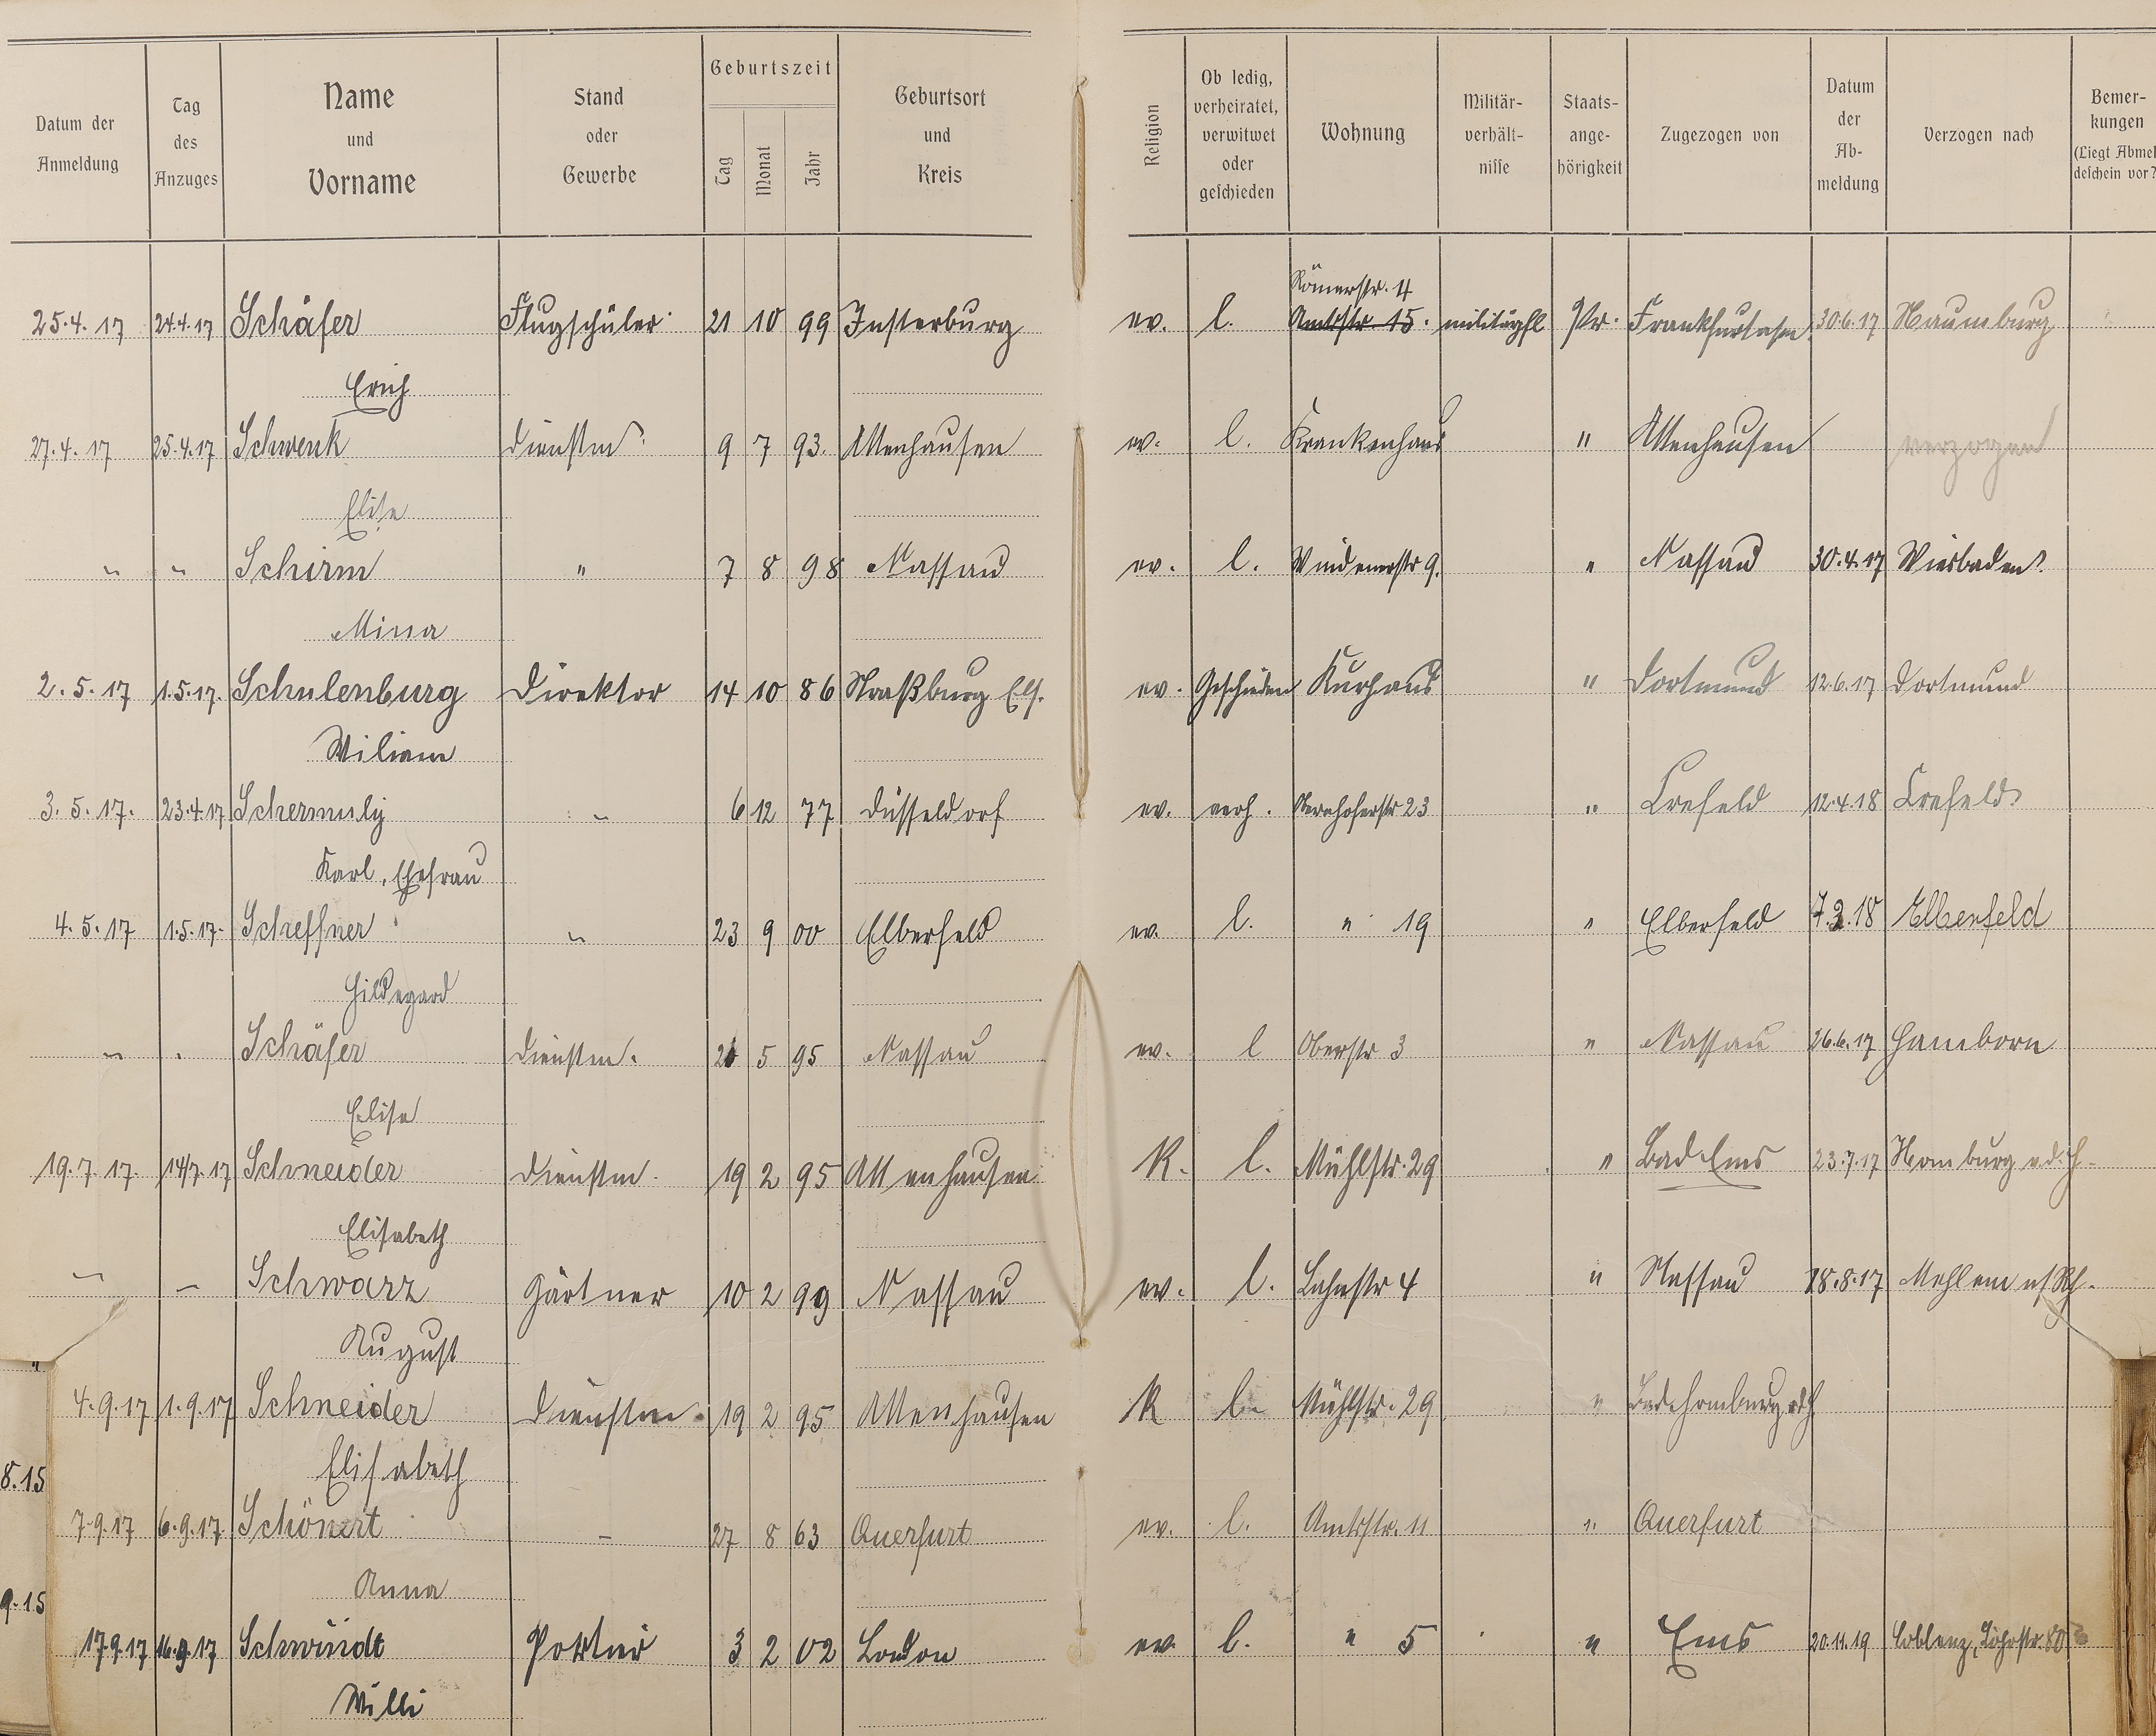 Datum der Anmeldung | Tag des Anzuges | Name und Vorname | Stand oder Gewerbe | Geburtszeit Tag Monat Jahr | Geburtsort und Kreis | Religion | Ob ledig, verheiratet, verwitwet oder geschieden | Wohnung | Militär-verhält-nisse | Staats-ange-hörigkeit | Zugezogen von | Datum der Ab-meldung | Verzogen nach | Bemer-kungen (Liegt Abmel deschein vor?
Römerstr. 4
25.4.17 24.4.17 Schäfer Flugschüler 21 10 99 Insterburg ev. l. Amtsstr 15. militärpfl Pr. 30.6.17 Naumburg
Erich
27.4.17 25.4.17 Schwenk Dienstm. 9 7 93. Attenhausen ev. l. Krankenhaus " Attenhausen verzogen
Elise
" " Schirm " 7 8 98 Nassau ev. l. Windenerstr 9. " Nassau 30.4.17 Wiesbaden.
Mina
2.5.17 1.5.17. Schulenburg Direktor 14 10 86 Straßburg Els. ev. Geschieden Kurhaus " Dortmund 12.6.17 Dortmund
Wiliam
3.5.17. 23.4.17 Schermuly - 6 12 77 Düsseldorf ev. verh. Obernhoferstr 23 " Crefeld 12.4.18 Crefeld
Karl, Ehefrau
4.5.17 1.5.17. Scheffner - 23 9 00 Elberfeld ev. l. " 19 " Elberfeld 7.3.18 Elberfeld
Hildegard
" " Schäfer Dienstm. 5 95 Nassau ev. l Oberstr 3 " Nassau 26.6.17 Hamborn
Elise
19.7.17. 14/7.17 Schneider Dienstm. 19 2 95 Attenhausen K. l. Mühlstr. 29 " Bad Ems 23.7.17 Homburg v.d.H.
Elisabeth
" - Schwarz Gärtner 10 2 99 Nassau ev. l. Lahnstr 4 " Nassau 18.8.17 Mehlem a/Rh.
August
"
4.9.17 1.9.17 Schneider Dienstm. 19 2 95 Attenhausen K l. Mühlstr. 29 " Bad Homburg vdH
8.15 Elisabeth
7.9.17 6.9.17 Schönert - 27 8 63 Querfurt ev. l. Amtsstr. 11 " Querfurt
9.15 Anna
17.9.17 16.9.17 Schwindt Portier 3 2 02 London ev. l. " 5 " Ems 20.11.19 Coblenz, Löhrstr. 80
Willi